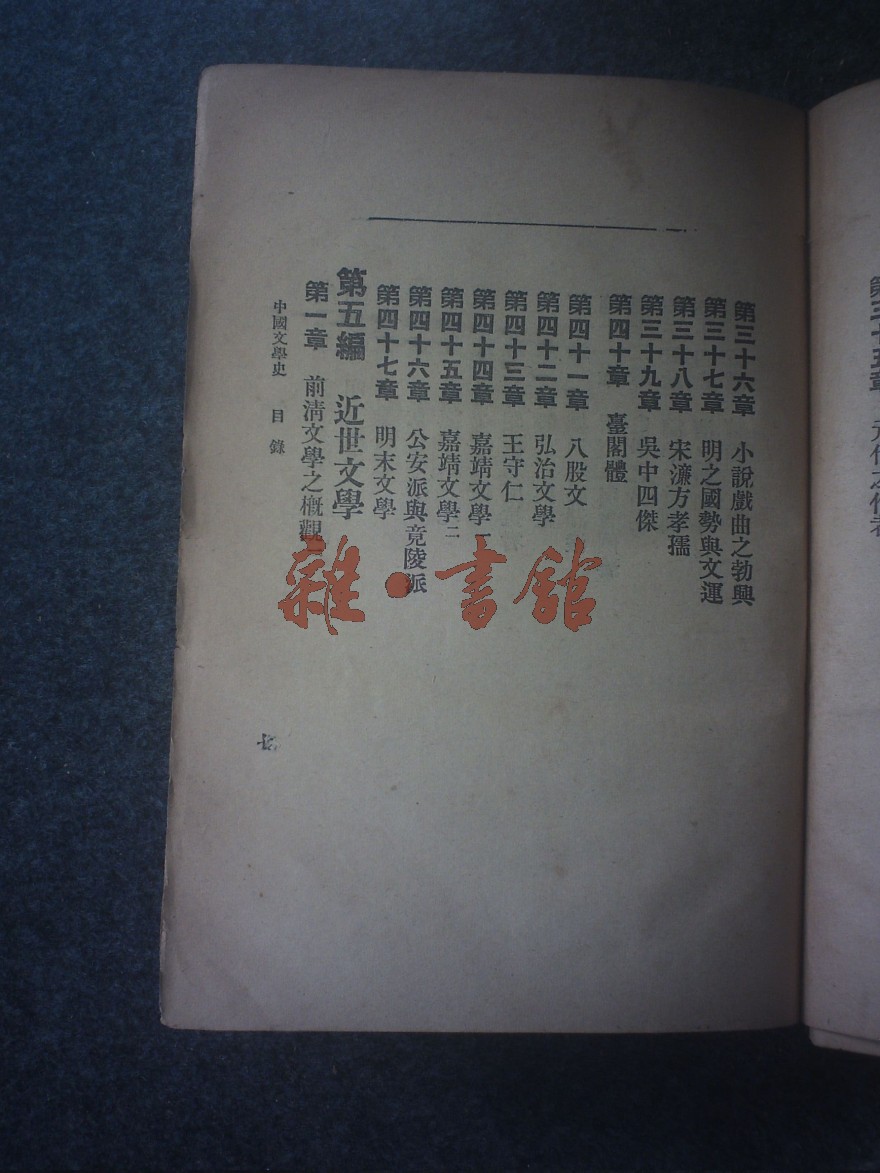 第三十六章 小說戲曲之勃興
第三十七章 明之國勢與文運
第三十八章 宋濂方孝孺
第三十九章 吳中四傑
第四十章 臺閣體
第四十一章 八股文
第四十二章 弘治文學
第四十三章 王守仁
第四十四章 嘉靖文學一
第四十五章 嘉靖文學二
第四十六章 公安派與竟陵派
第四十七章 明末文學
第五編 近世文學
第一章 前淸文學之槪觀
中國文學史 目錄
雜·書館